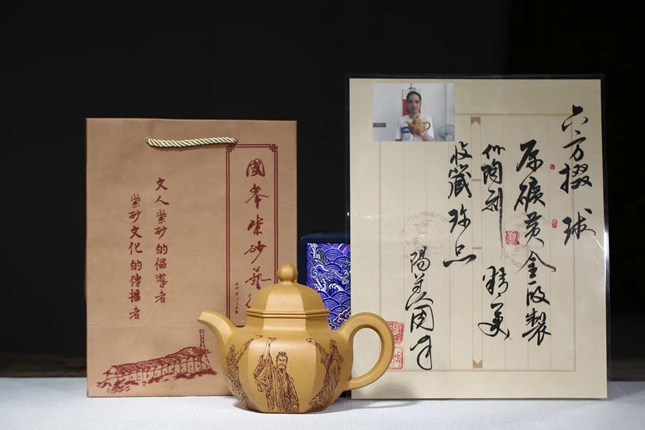 國峯紫砂藝
文人紫砂的倡導者
紫砂文化的傳播者
六方掇球
原礦黄金段製
陶刻精美
收藏珍品
陽羨